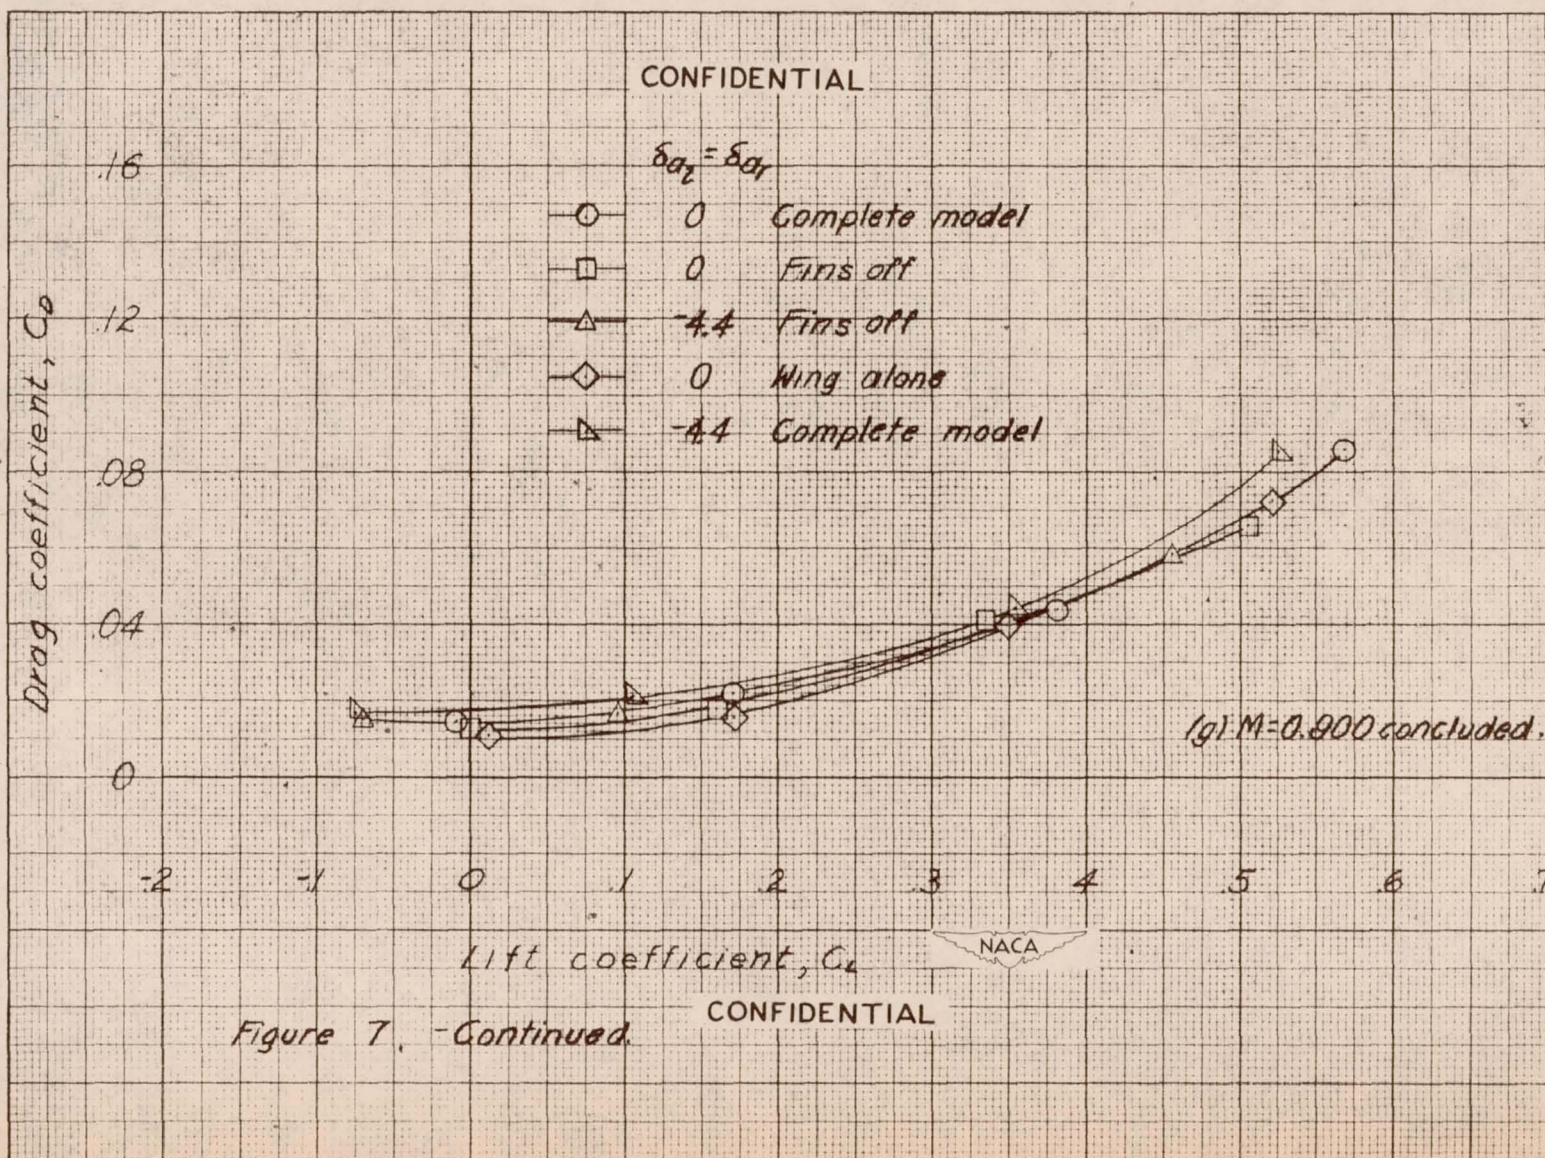 CONFIDENTIAL
δaι = δar
0 Complete model
0 Fins off
-4.4 Fins off
0 Wing alone
-4.4 Complete model
Drag coefficient, CD
.16
.12
.08
.04
0
-.2 -.1 0 .1 .2 .3 .4 .5 .6 .7
(g) M=0.900 concluded.
Lift coefficient, CL
NACA
CONFIDENTIAL
Figure 7. -Continued.